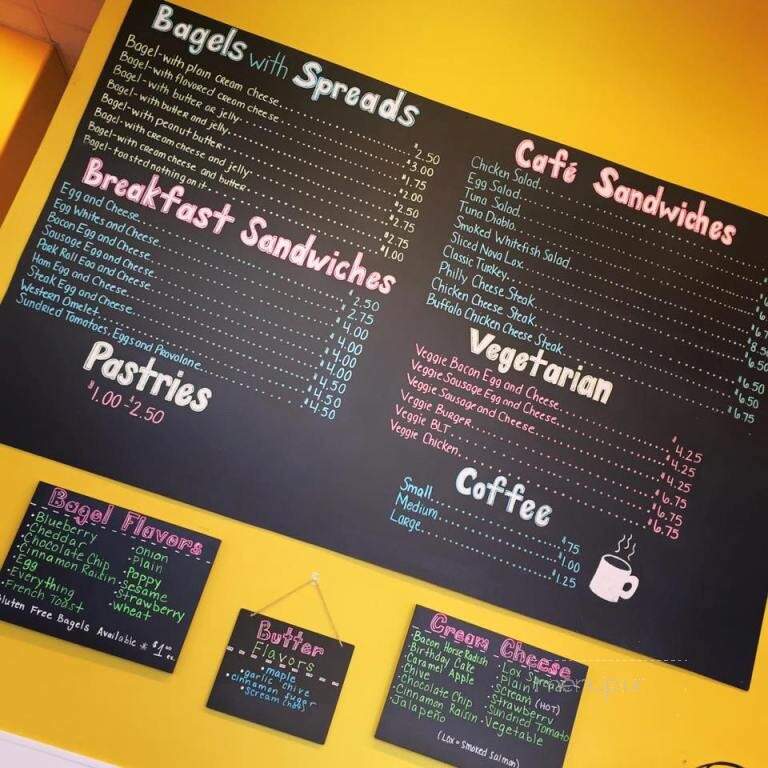 Bagels with Spreads
Bagel-with plain cream cheese $2.50
Bagel-with flavored cream cheese $3.00
Bagel-with butter or jelly $1.75
Bagel-with butter and jelly $2.00
Bagel-with peanut butter $2.50
Bagel-with cream cheese and jelly $2.75
Bagel-with cream cheese and butter $2.75
Bagel-toasted nothing on it $1.00
Breakfast Sandwiches
Egg and Cheese $2.50
Egg Whites and Cheese $2.75
Bacon Egg and Cheese $4.00
Sausage Egg and Cheese $4.00
Pork Roll Egg and Cheese $4.00
Ham Egg and Cheese $4.00
Steak Egg and Cheese $4.50
Western Omelet $4.50
Sundried Tomatoes, Eggs and Provolone $4.50
Pastries
$1.00-$2.50
Café Sandwiches
Chicken Salad
Egg Salad
Tuna Salad
Tuna Diablo
Smoked Whitefish Salad
Sliced Nova Lox
Classic Turkey
Philly Cheese Steak $6.50
Chicken Cheese Steak $6.50
Buffalo Chicken Cheese Steak $6.75
Vegetarian
Veggie Bacon Egg and Cheese $4.25
Veggie Sausage Egg and Cheese $4.25
Veggie Sausage and Cheese $4.25
Veggie Burger $6.75
Veggie BLT $6.75
Veggie Chicken $6.75
Coffee
Small $.75
Medium $1.00
Large $1.25
Bagel Flavors
·Blueberry
·Cheddar
·Chocolate Chip
·Cinnamon Raisin
·Egg
·Everything
·French Toast
·Onion
·Plain
·Poppy
·Sesame
·Strawberry
·Wheat
Gluten Free Bagels Available * $1.00 ex.
Butter
Flavors
·maple
·garlic chive
·cinnamon suger
·scream (hot)
Cream Cheese
·Bacon Horse Radish
·Birthday Cake
·Caramel Apple
·Chive
·Chocolate Chip
·Cinnamon Raisin
·Jalapeño
·Lox Spread
·Plain
·scream (HOT)
·Strawberry
·Sundried Tomato
·Vegetable
(Lox = Smoked Salmon)
menupix